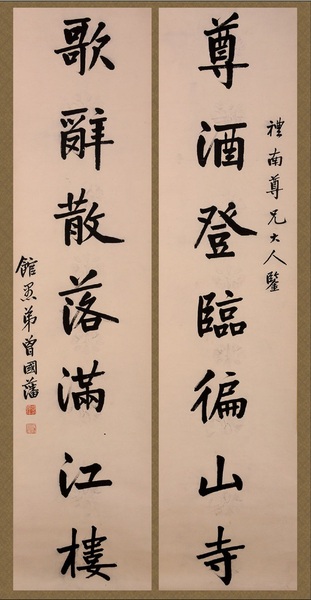 禮南尊兄大人鑒
尊酒登臨徧山寺
歌辭散落滿江樓
館愚弟曾國藩